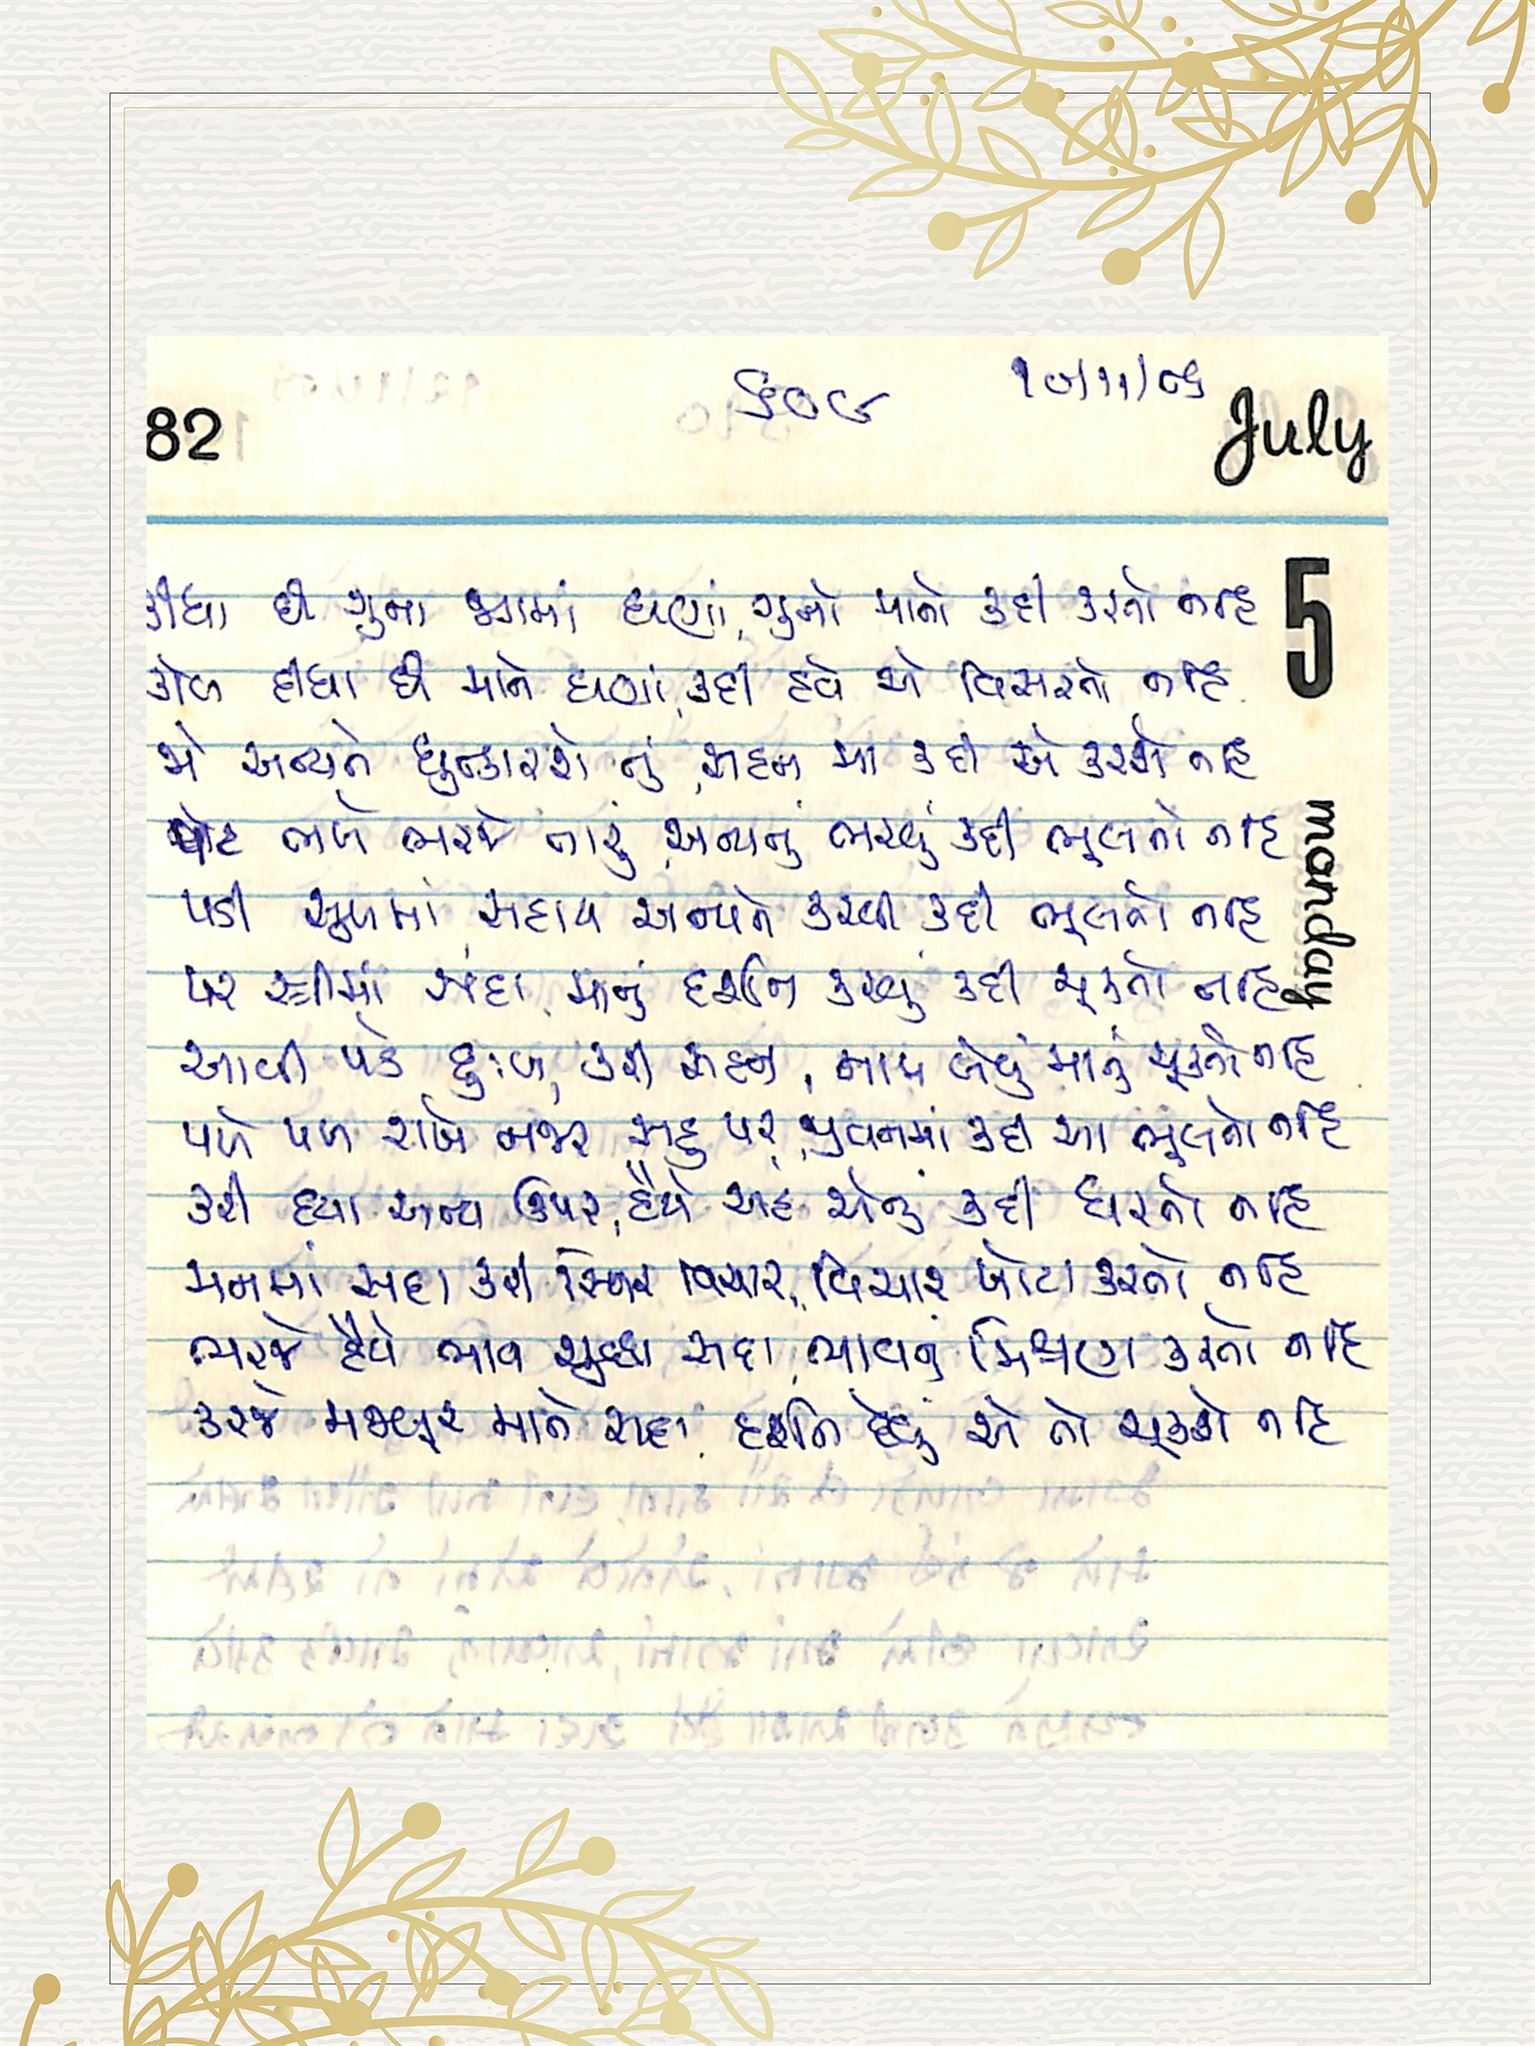 ૬૦૯ ૧૦/૧૧/૦૬
82 July
5
monday
કીધા છે ગુના જગમાં ઘણાં, ગુનો માનો કદી કરતો નહિ
કોલ દીધા છે માને ઘણાં, કદી હવે એ વિસરતો નહિ
જે અન્યને ધુત્કારશે તું, સહન મા કદી એ કરશે નહિ
પેટ ભલે ભરજે તારું, અન્યનું ભરવું કદી ભૂલતો નહિ
પડી સુખમાં, સહાય અન્યને કરવી કદી ભૂલતો નહિ
પર સ્ત્રીમાં સદા, માનું દર્શન કરવું કદી ચૂકતો નહિ
આવી પડે દુઃખ, કરી સહન, નામ લેવું માનું ચૂકતો નહિ
પળે પળ રાખે નજર સહુ પર, જીવનમાં કદી આ ભૂલતો નહિ
કરી દયા અન્ય ઉપર, હૈયે અહં એનું કદી ધરતો નહિ
મનમાં સદા કરી સ્થિર વિચાર, વિચાર ખોટા કરતો નહિ
ભરજે હૈયે ભાવ શુદ્ધ સદા, ભાવનું મિશ્રણ કરતો નહિ
કરજે મજબૂર માને સદા, દર્શન દેવું એ તો ચૂકશે નહિ